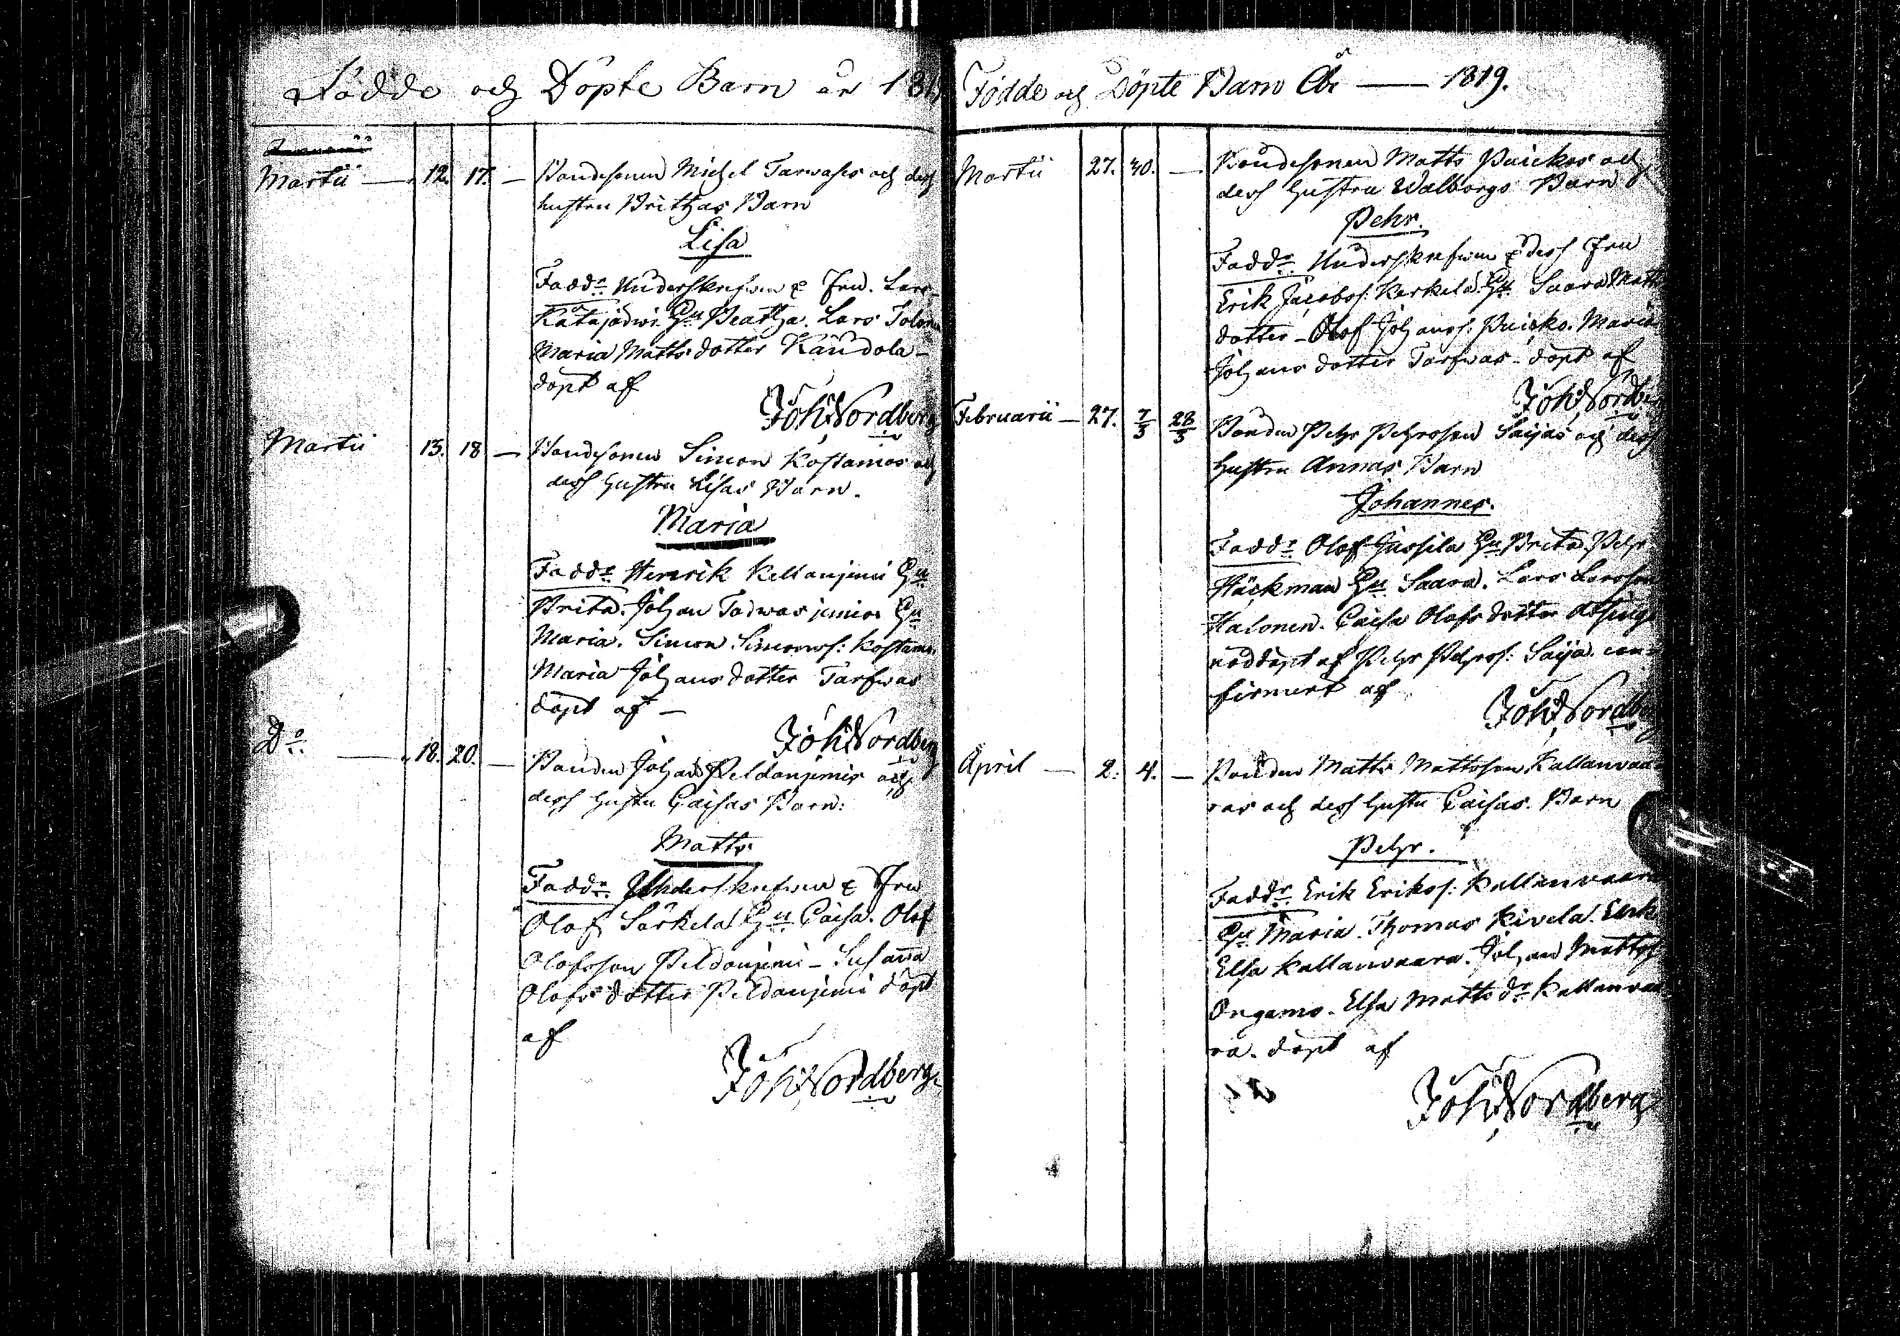 Födde och Döpte Barn år 1819
Januarii
Martii — 12. 17. — Bondesonen Michel Tarwas och dess
hustru Brithas Barn
Lisa
Fadd:r Underskrefwen & Fru. Lars
Katajaniemi Hu Beatha. Lars Tolonen
Maria Matts dotter Kandola
döpt af
Joh: Nordberg
Martii 13. 18 — Bondesonen Simon Kostamos och
dess hustru Lisas Barn.
Maria
Fadd:r Henrik Kellaniemi Hu
Brita. Johan Tarwas junior Hu
Maria. Simon Simons: Kostamo
Maria Johans dotter Tarfwas
döpt af —
Joh: Nordberg
D:o — 18. 20. — Bonden Johan Peldoniemis och
dess hustru Caisas Barn:
Matts
Fadd:r Underskrefwen & Fru
Olof Särkela Hu Caisa. Olof
Olofsson Peldoniemi — Susanna
Olofs dotter Peldoniemi döpt
af
Joh: Nordberg
Födde och Döpte Barn År — 1819.
Martii 27. 30. — Bondesonen Matts Puickos och
dess hustru Walborgs Barn
Pehr.
Fadd:r Underskrefwen & dess Fru
Erik Jacobs: Kerkela Hu Saara Matts
dotter — Olof Johans: Puicko. Maria
Johans dotter Tarfwas — döpt af
Joh: Nordberg
Februarii — 27. 7/3 28/3 Bonden Pehr Pehrsson Saijas och dess
hustru Annas Barn
Johannes.
Fadd:r Olof Jussila Hu Brita. Pehr
Häckman Hu Saara. Lars Larsson
Halonen. Caisa Olofs dotter
nöddöpt af Pehr Pehrss: Saija. con-
firmert af
Joh: Nordberg
April — 2. 4. — Bonden Matts Mattsson Kallanvaa-
ras och dess hustru Caisas. Barn
Pehr.
Fadd:r Erik Eriks: Kallanvaara
Hu Maria. Thomas Kivela. Enk.
Elsa Kallanvaara. Johan Mattss:
Ongamo. Elsa Matts dr Kallanvaa-
ra. döpt af
Joh: Nordberg